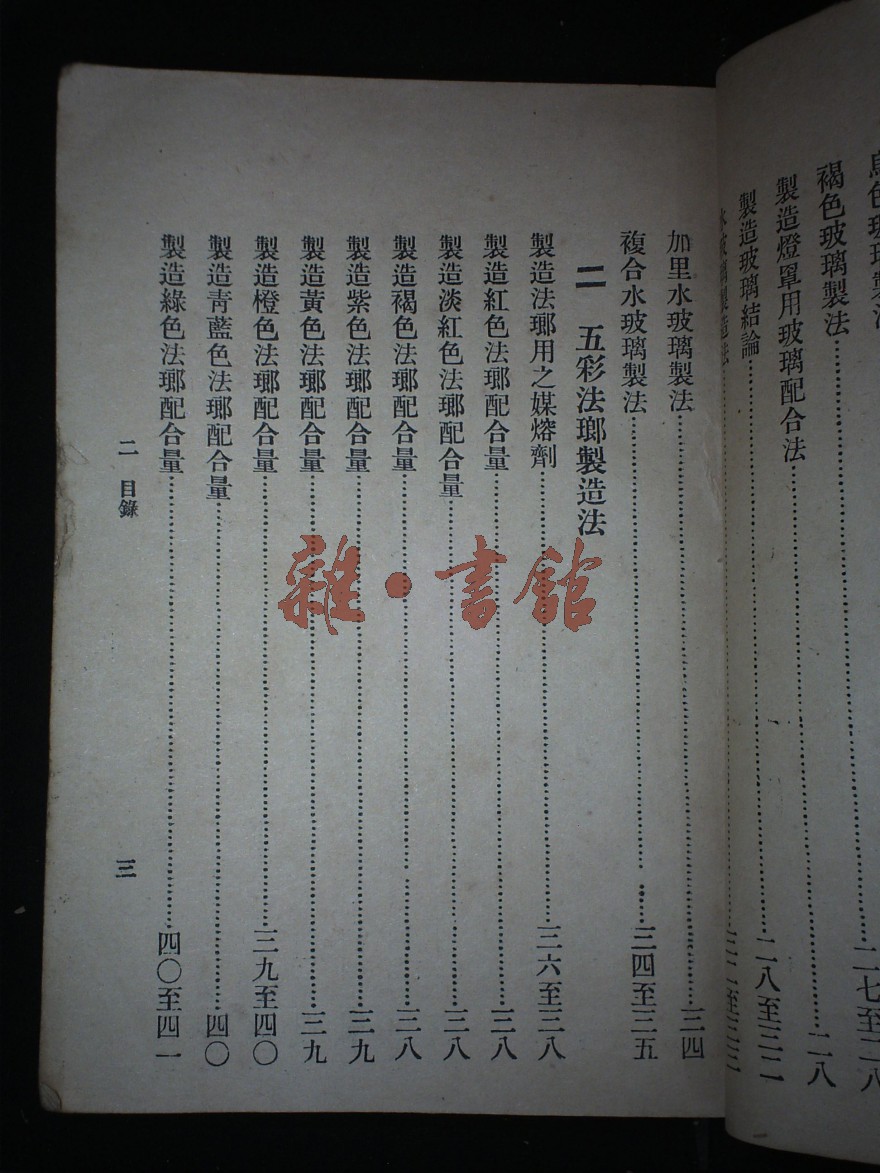 褐色玻璃製法……二八
製造燈罩用玻璃配合法
製造玻璃結論……二八至三二
加里水玻璃製法……三四
複合水玻璃製法……三四至三五
二 五彩法瑯製造法
製造法瑯用之媒熔劑……三六至三八
製造紅色法瑯配合量……三八
製造淡紅色法瑯配合量……三八
製造褐色法瑯配合量……三八
製造紫色法瑯配合量……三九
製造黃色法瑯配合量……三九
製造橙色法瑯配合量……三九至四〇
製造靑藍色法瑯配合量……四〇
製造綠色法瑯配合量……四〇至四一
二 目錄
三
雜·書館